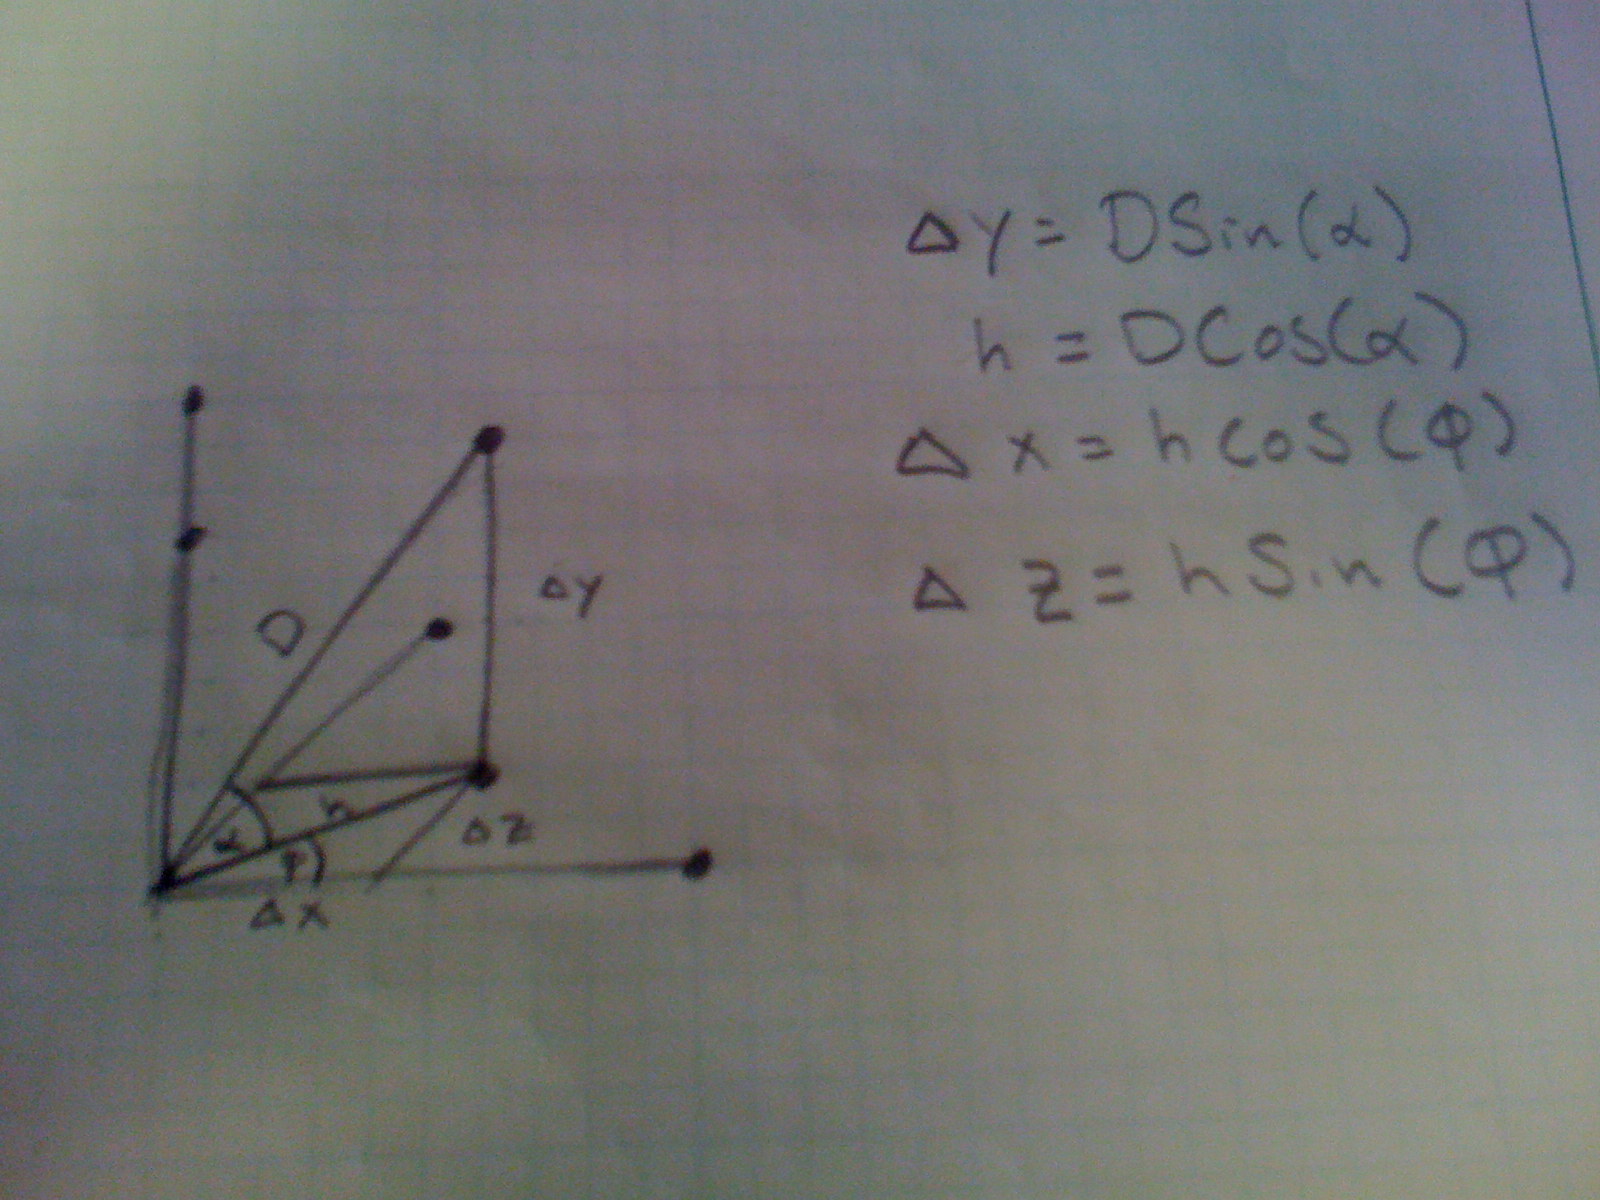 D
α
φ
h
Δx
Δz
Δy
Δy = DSin(α)
h = DCos(α)
Δx = hCos(φ)
Δz = hSin(φ)